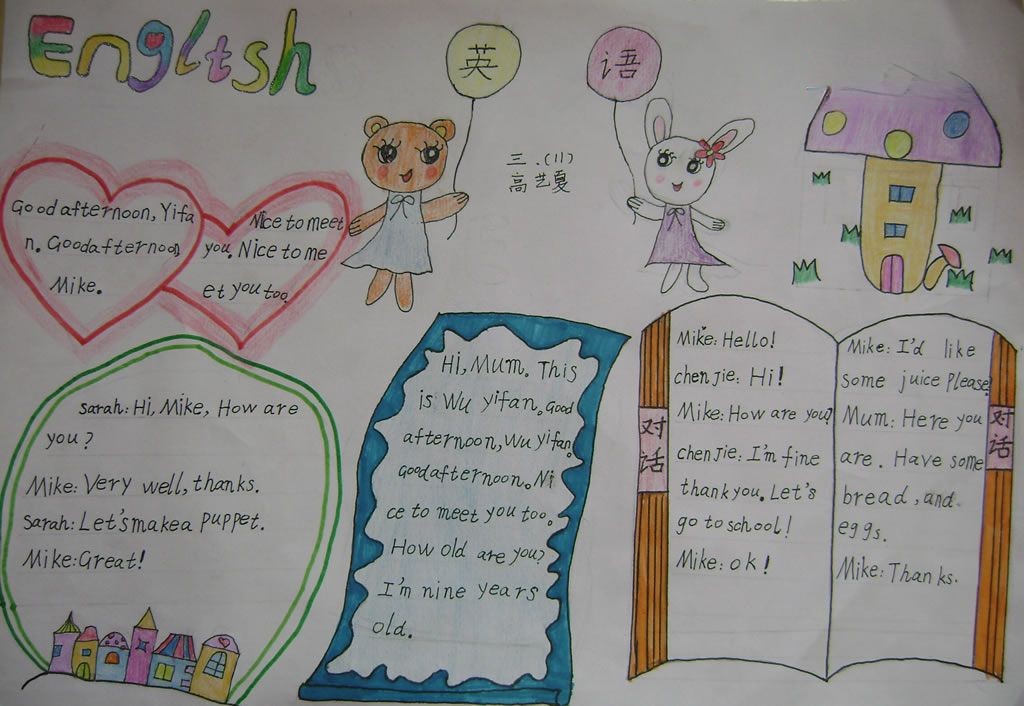 English
英
语
三.(11)
高艺夏
Good afternoon, Yifa
n. Good afternoon
Mike.
Nice to meet
you. Nice to me
et you too.
Sarah: Hi, Mike, How are
you?
Mike: Very well, thanks.
Sarah: Let's make a puppet.
Mike: Great!
Hi, Mum. This
is Wu Yifan. Good
afternoon, Wu Yifan.
Good afternoon. Ni
ce to meet you too.
How old are you?
I'm nine years
old.
对话
Mike: Hello!
chen Jie: Hi!
Mike: How are you?
chen Jie: I'm fine
thank you. Let's
go to school!
Mike: ok!
Mike: I'd like
some juice Please!
Mum: Here you
are. Have some
bread, and
eggs.
Mike: Thanks.
对话